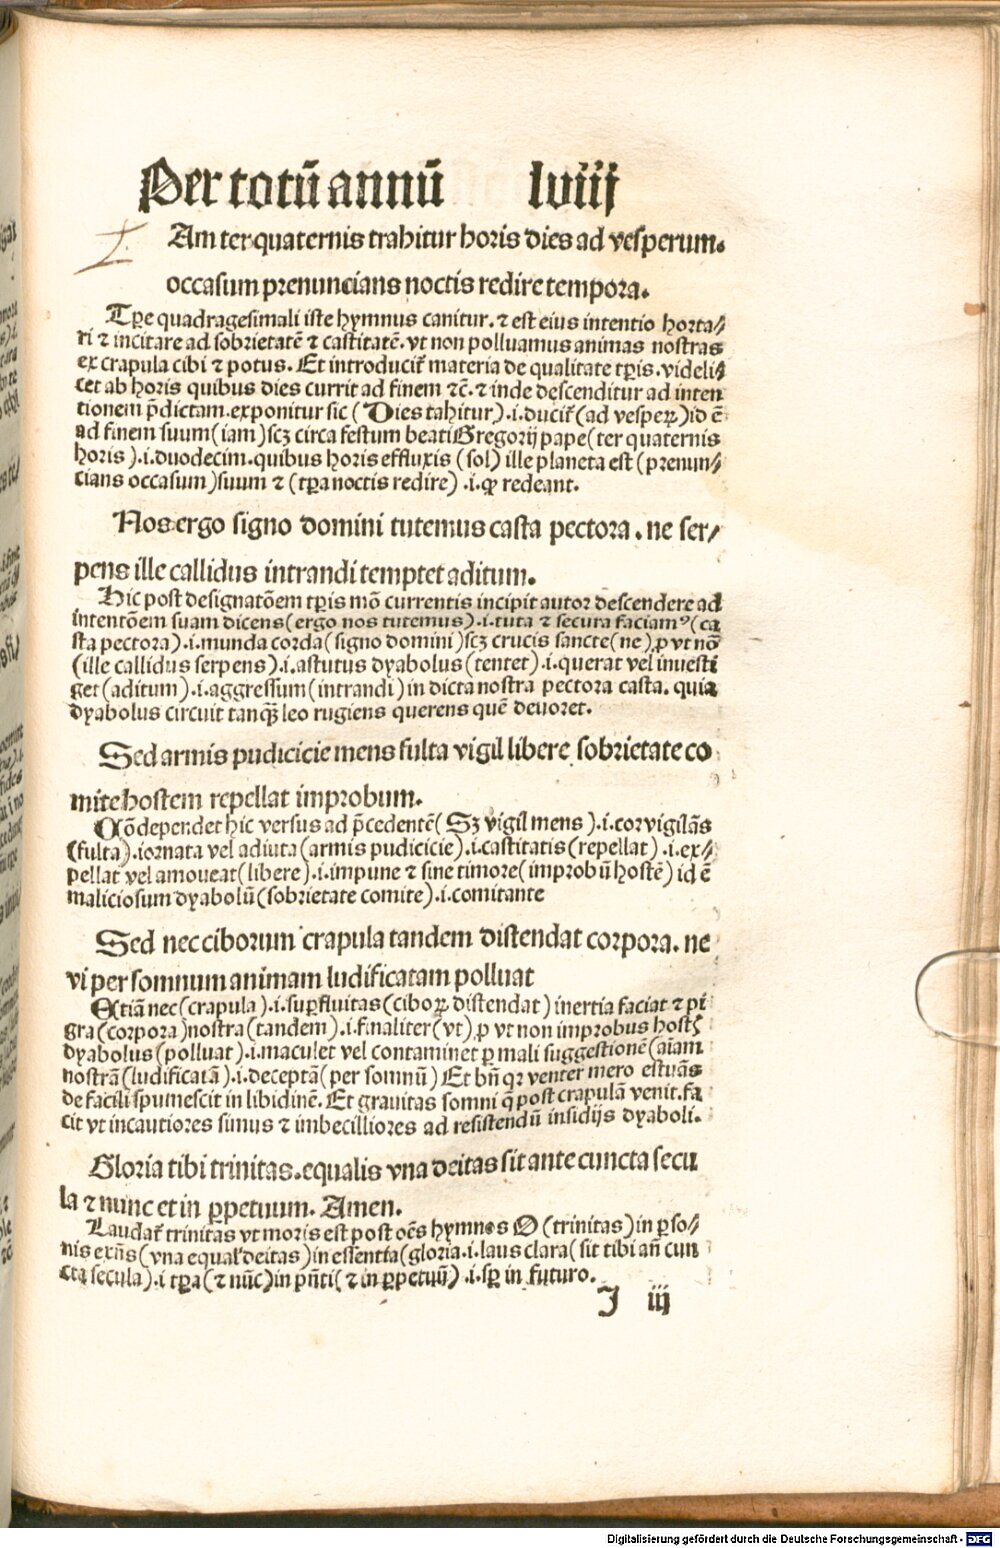 Per totū annū lviij
Am ter quaternis trahitur horis dies ad vesperum.
occasum prenuncians noctis redire tempora.
Tꝑe quadragesimali iste hymnus canitur. ⁊ est eius intentio horta⸗
ri ⁊ incitare ad sobrietatē ⁊ castitatē. vt non polluamus animas nostras
ex crapula cibi ⁊ potus. Et introducit̉ materia de qualitate tꝑis. videli⸗
cet ab horis quibus dies currit ad finem ⁊c̄. ⁊ inde descenditur ad inten
tionem p̄dictam. exponitur sic (Dies tahitur) .i. ducit̉ (ad vesperꝝ) id ē
ad finem suum (iam) scꝫ circa festum beati Gregorij pape (ter quaternis
horis) .i. duodecim. quibus horis effluxis (sol) ille planeta est (prenun⸗
cians occasum) suum ⁊ (tꝑa noctis redire) .i. ꝙ redeant.
Nos ergo signo domini tutemus casta pectora. ne ser⸗
pens ille callidus intrandi temptet aditum.
Hic post designatōem tꝑis mō currentis incipit autor descendere ad
intentōem suam dicens (ergo nos tutemus) .i. tuta ⁊ secura faciamꝰ (ca
sta pectora) .i. munda corda (signo domini) scꝫ crucis sancte (ne) ꝓ vt nō
(ille callidus serpens) .i. astutus dyabolus (tentet) .i. querat vel inuesti
get (aditum) .i. aggressum (intrandi) in dicta nostra pectora casta. quia
dyabolus circuit tanqꝫ̄ leo rugiens querens quē deuoret.
Sed armis pudicicie mens fulta vigil libere sobrietate co
mite hostem repellat improbum.
Cōdependet hic versus ad p̄cedentē (Sꝫ vigil mens) .i. cor vigilās
(fulta) .i ornata vel adiuta (armis pudicicie) .i. castitatis (repellat) .i. ex⸗
pellat vel amoueat (libere) .i. impune ⁊ sine timore (improbū hostē) id ē
maliciosum dyabolū (sobrietate comite) .i. comitante
Sed nec ciborum crapula tandem distendat corpora. ne
vi per somnum animam ludificatam polluat
Etiā nec (crapula) .i. suꝑfluitas (ciboꝝ distendat) inertia faciat ⁊ pi
gra (corpora) nostra (tandem) .i. finaliter (vt) ꝓ vt non improbus hostꝭ
dyabolus (polluat) .i. maculet vel contaminet ꝑ mali suggestionē (aīam
nostrā (ludificatā) .i. deceptā (per somnū) Et bn̄ qꝛ venter mero estuās
de facili spumescit in libidinē. Et grauitas somni q̄ post crapulā venit. fa
cit vt incautiores simus ⁊ imbecilliores ad resistendū insidijs dyaboli.
Gloria tibi trinitas. equalis vna deitas sit ante cuncta secu
la ⁊ nunc et in ꝑpetuum. Amen.
Laudat̉ trinitas vt moris est post oēs hymnos O (trinitas) in ꝑso⸗
nis exn̄s (vna equal' deitas) in essentia (gloria .i. laus clara (sit tibi añ cun
cta secula) .i tꝑa (⁊ nūc) in pn̄ti (⁊ in ꝑpetuū) .i. sꝑ in futuro.
I iij
Digitalisierung gefördert durch die Deutsche Forschungsgemeinschaft - DFG